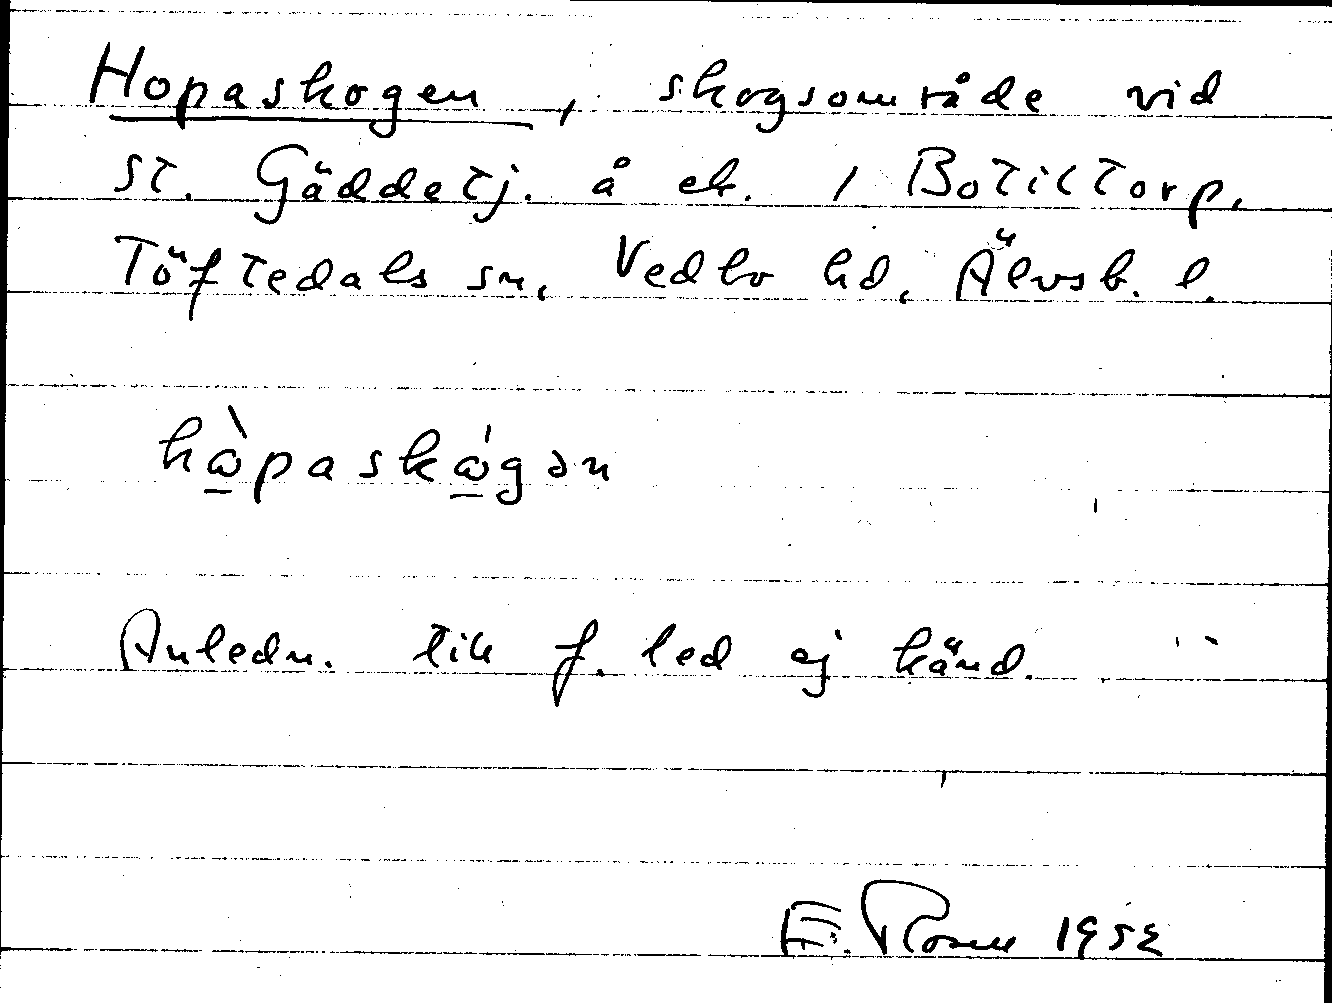 Hopaskogen, skogsområde vid
St. Gäddetj. å ek. 1 Botiltorp,
Töftedals sn, Vedbo hd, Älvsb. l.
hὼpaskώgən
Anledn. till f. led ej känd.
E. Rosell 1952